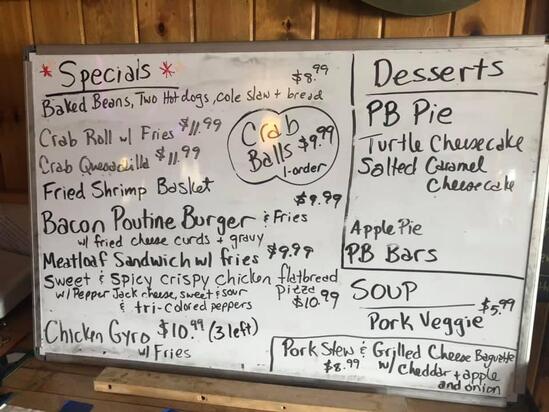 * Specials *
$8.99
Baked Beans, Two Hot dogs, Cole Slaw + bread
Crab Roll w/ Fries $11.99
Crab Quesadilla $11.99
Crab
Balls $9.99
1-order
Fried Shrimp Basket
$9.99
Bacon Poutine Burger & Fries
w/ fried cheese curds + gravy
Meatloaf Sandwich w/ fries $9.99
Sweet & Spicy Crispy Chicken flatbread
w/ Pepper Jack cheese, sweet & sour
Pizza
& tri-colored peppers
$10.99
Chicken Gyro $10.99 (3 left)
w/ Fries
Desserts
PB Pie
Turtle Cheesecake
Salted Caramel
Cheesecake
Apple Pie
PB Bars
SOUP
$5.99
Pork Veggie
Pork Stew & Grilled Cheese Baguette
$8.99 w/ Cheddar + apple
and onion